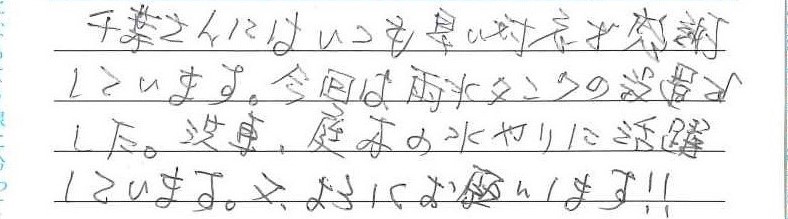 千葉さんにはいつも早い対応で感謝
しています。今回は雨水タンクの設置で
した。洗車、庭木の水やりに活躍
しています。又、よろしくお願いします!!